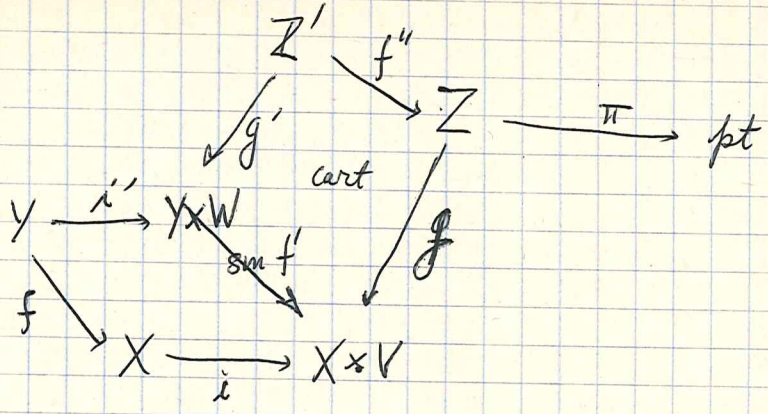 Z'
f''
Z
π
pt
g'
cart
g
Y
i'
Y×W
sm f'
f
X
i
X×V